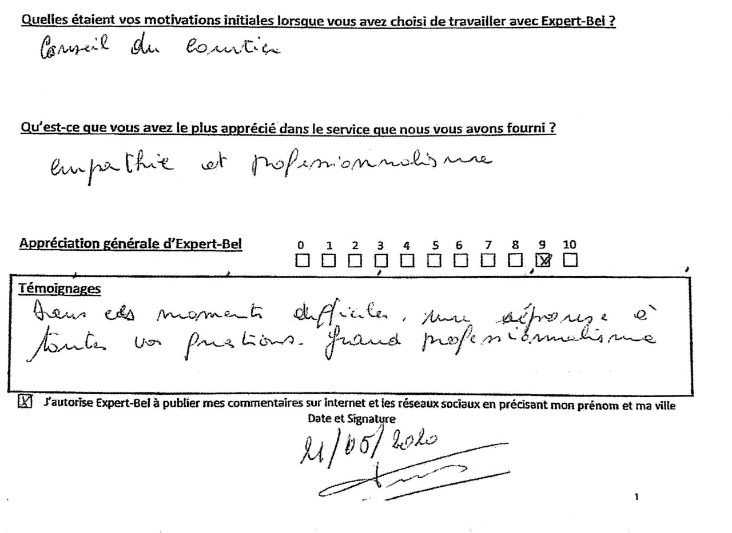 Quelles étaient vos motivations initiales lorsque vous avez choisi de travailler avec Expert-Bel ?
Conseil du courtier
Qu'est-ce que vous avez le plus apprécié dans le service que nous vous avons fourni ?
empathie et professionnalisme
Appréciation générale d'Expert-Bel
0 1 2 3 4 5 6 7 8 9 10
Témoignages
Dans ces moments difficiles, une réponse à
toutes vos questions. Grand professionnalisme
J'autorise Expert-Bel à publier mes commentaires sur internet et les réseaux sociaux en précisant mon prénom et ma ville
Date et Signature
21/05/2020
1